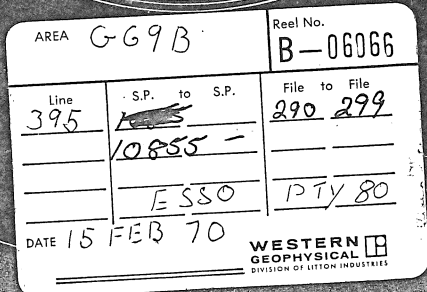 AREA GG9B Reel No.
B-06066
Line S.P. to S.P. File to File
395 290 299
10855 -
ESSO PTY 80
DATE 15 FEB 70
WESTERN
GEOPHYSICAL
DIVISION OF LITTON INDUSTRIES